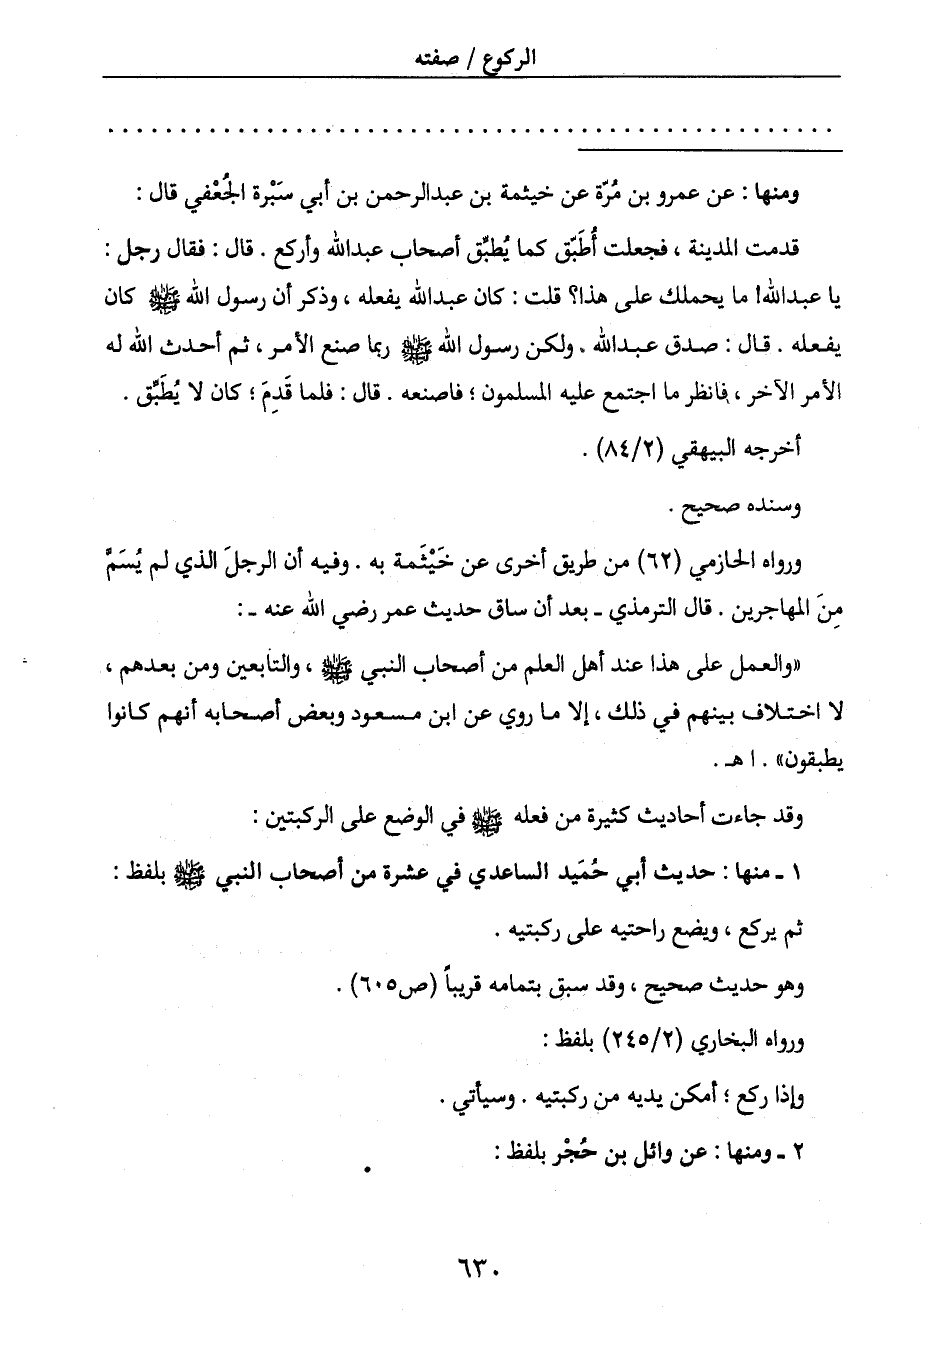 الركوع / صفته
ومنها : عن عمرو بن مُرّة عن خيثمة بن عبدالرحمن بن أبي سَبْرة الجُعْفي قال :
قدمت المدينة ، فجعلت أُطَبِّق كما يُطبِّق أصحاب عبدالله وأركع . قال : فقال رجل :
يا عبدالله! ما يحملك على هذا؟ قلت : كان عبدالله يفعله ، وذكر أن رسول الله ﷺ كان
يفعله . قال : صدق عبدالله . ولكن رسول الله ﷺ ربما صنع الأمر ، ثم أحدث الله له
الأمر الآخر ، فانظر ما اجتمع عليه المسلمون ؛ فاصنعه . قال : فلما قَدِمَ ؛ كان لا يُطَبِّق .
أخرجه البيهقي (٨٤/٢) .
وسنده صحيح .
ورواه الحازمي (٦٢) من طريق أخرى عن خَيْثَمة به . وفيه أن الرجلَ الذي لم يُسَمَّ
مِنَ المهاجرين . قال الترمذي ـ بعد أن ساق حديث عمر رضي الله عنه ـ :
«والعمل على هذا عند أهل العلم من أصحاب النبي ﷺ ، والتابعين ومن بعدهم ،
لا اختلاف بينهم في ذلك ، إلا ما روي عن ابن مسعود وبعض أصحابه أنهم كانوا
يطبقون» . ا هـ .
وقد جاءت أحاديث كثيرة من فعله ﷺ في الوضع على الركبتين :
١ ـ منها : حديث أبي حُمَيد الساعدي في عشرة من أصحاب النبي ﷺ بلفظ :
ثم يركع ، ويضع راحتيه على ركبتيه .
وهو حديث صحيح ، وقد سبق بتمامه قريباً (ص٦٠٥) .
ورواه البخاري (٢٤٥/٢) بلفظ :
وإذا ركع ؛ أمكن يديه من ركبتيه . وسيأتي .
٢ ـ ومنها : عن وائل بن حُجْر بلفظ :
٦٣٠